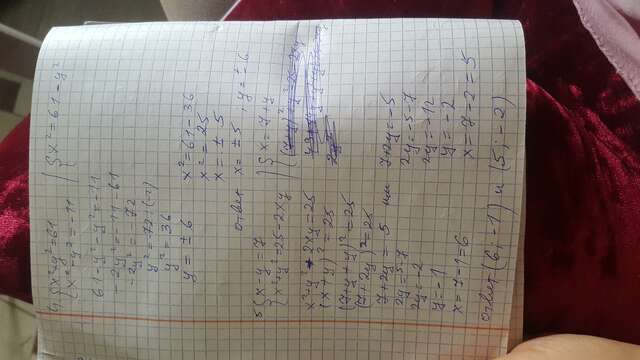 4) { x²+y²=61 | { x²=61-y²
{ x²-y²=-11
61-y²-y²=-11
-2y²=-11-61
-2y²=-72
y²=-72:(-2)
y²=36
y=±6
x²=61-36
x²=25
x=±5
ответ x=±5, y=±6
5 { x-y=7 | { x=7+y
{ x²+y²=25-2xy
x²+y²+2xy=25
(x+y)²=25
(7+y+y)²=25
(7+2y)²=25
7+2y=5 или 7+2y=-5
2y=5-7 2y=-5-7
2y=-2 2y=-12
y=-1 y=-2
x=7-1=6 x=7-2=5
ответ (6;-1) и (5;-2)